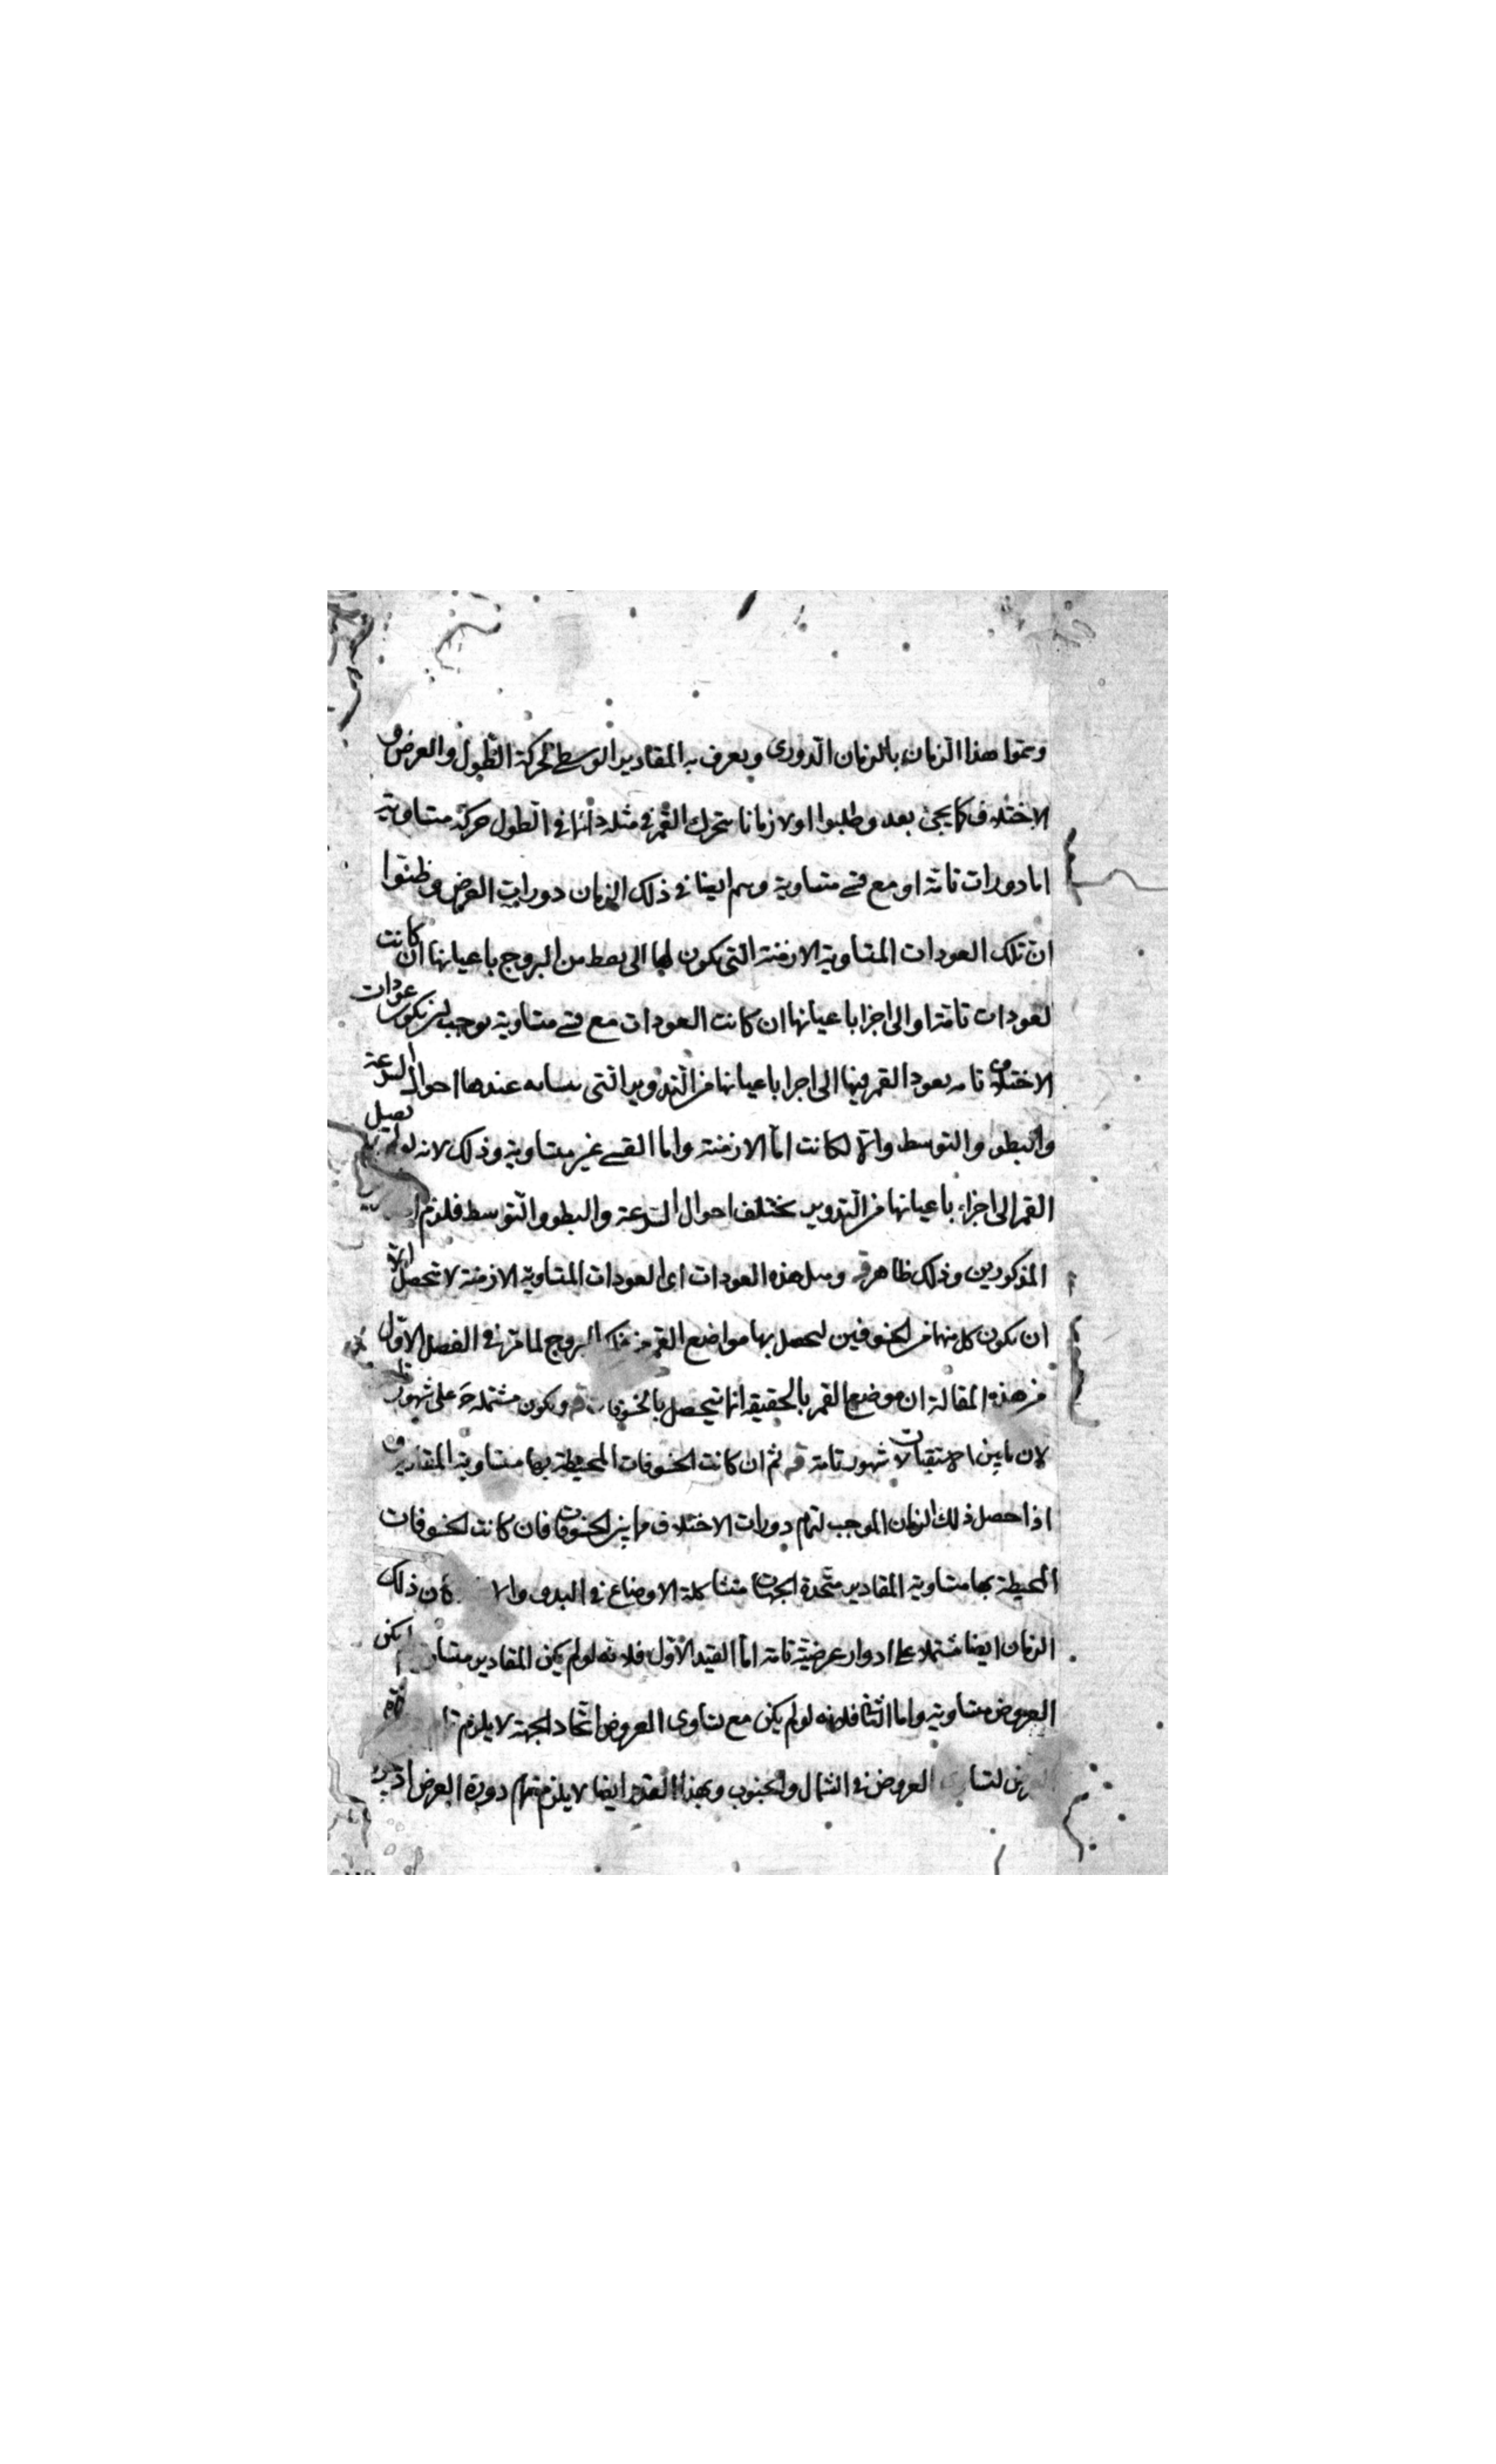 وسموا هذا الزمان بالزمان الدورى ويعرف به المقادير الوسطى لحركة الطول والعرض و
الاختلاف كما يجئ بعد وطلبوا اولا زمانا يتحرك القمر فى مثله دائما فى الطول حركة متساوية
اما دورات تامة او مع قسى متساوية وهم ايضا فى ذلك الزمان دورات العرض وظنوا
ان تلك العودات المتساوية الازمنة التى يكون لها الى نقط من البروج باعيانها ان كانت
العودات تامة او الى اجزا باعيانها ان كانت العودات مع قسى متساوية يوجب ان يكون عودات
الاختلاف تامه يعود القمر فيها الى اجزا باعيانها من التدوير التى يتشابه عندها احوال السرعة
والبطو والتوسط والا لكانت اما الازمنة واما القسى غير متساوية وذلك لانه لو لم يصل
القمر الى اجزاء باعيانها من التدوير يختلف احوال السرعة والبطو والتوسط فلزم
المذكورين وذلك ظاهر ومثل هذه العودات اى العودات المتساوية الازمنة لا تحصل الا
ان يكون كل منها من الخسوفين ليحصل بها مواضع القمر من فلك البروج لما مر فى الفصل الاول
من هذه المقالة ان موضع القمر بالحقيقة انما يتحصل بالخسوفات ويكون مشتملة على شهور
لان ما بين الاستقبالات شهور تامة ثم ان كانت الخسوفات المحيطة بها متساوية المقادير
اذا حصل ذلك الزمان الموجب لتمام دورات الاختلاف وما بين الخسوفات فان كانت الخسوفات
المحيطة بها متساوية المقادير متحدة الجهات متشاكلة الاوضاع فى البدو كان ذلك
الزمان ايضا مشتملا على ادوار عرضية تامة اما القيد الاول فلانه لو لم يكن المقادير لم يكن
العروض متساوية واما الثانى فلانه لو لم يكن مع تساوى العروض اتحاد الجهة لا يلزم
العرض لتساوى العروض فى الشمال والجنوب وبهذا القدر ايضا لا يلزم تمام دورة العرض